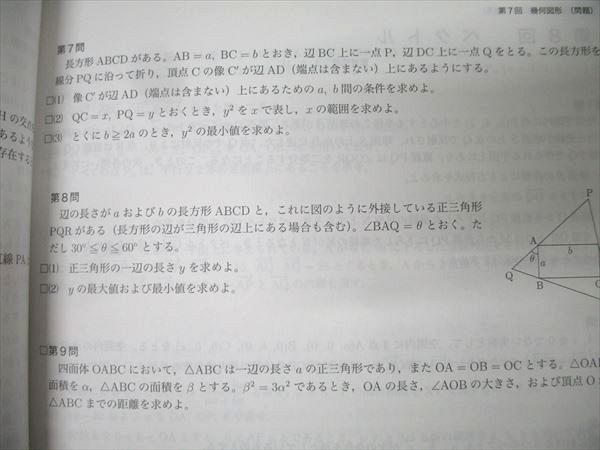 第7回 幾何図形 (問題)
第7問
長方形 ABCD がある。AB = a, BC = b とおき，辺 BC 上に一点 P，辺 DC 上に一点 Q をとる。この長方形を
線分 PQ に沿って折り，頂点 C の像 C′ が辺 AD（端点は含まない）上にあるようにする。
□(1) 像 C′ が辺 AD（端点は含まない）上にあるための a, b 間の条件を求めよ。
□(2) QC = x, PQ = y とおくとき，y² を x で表し，x の範囲を求めよ。
□(3) とくに b ≧ 2a のとき，y² の最小値を求めよ。
第8問
辺の長さが a および b の長方形 ABCD と，これに図のように外接している正三角形
PQR がある（長方形の辺が三角形の辺上にある場合も含む）。∠BAQ = θ とおく。た
だし 30° ≦ θ ≦ 60° とする。
□(1) 正三角形の一辺の長さ y を求めよ。
□(2) y の最大値および最小値を求めよ。
P
A
b
θ
a
Q
B
C
□第9問
四面体 OABC において，△ABC は一辺の長さ a の正三角形であり，また OA = OB = OC とする。△OA
面積を α，△ABC の面積を β とする。β² = 3α² であるとき，OA の長さ，∠AOB の大きさ，および頂点 O
△ABC までの距離を求めよ。
H の交
あるよう
存在する
線 PA